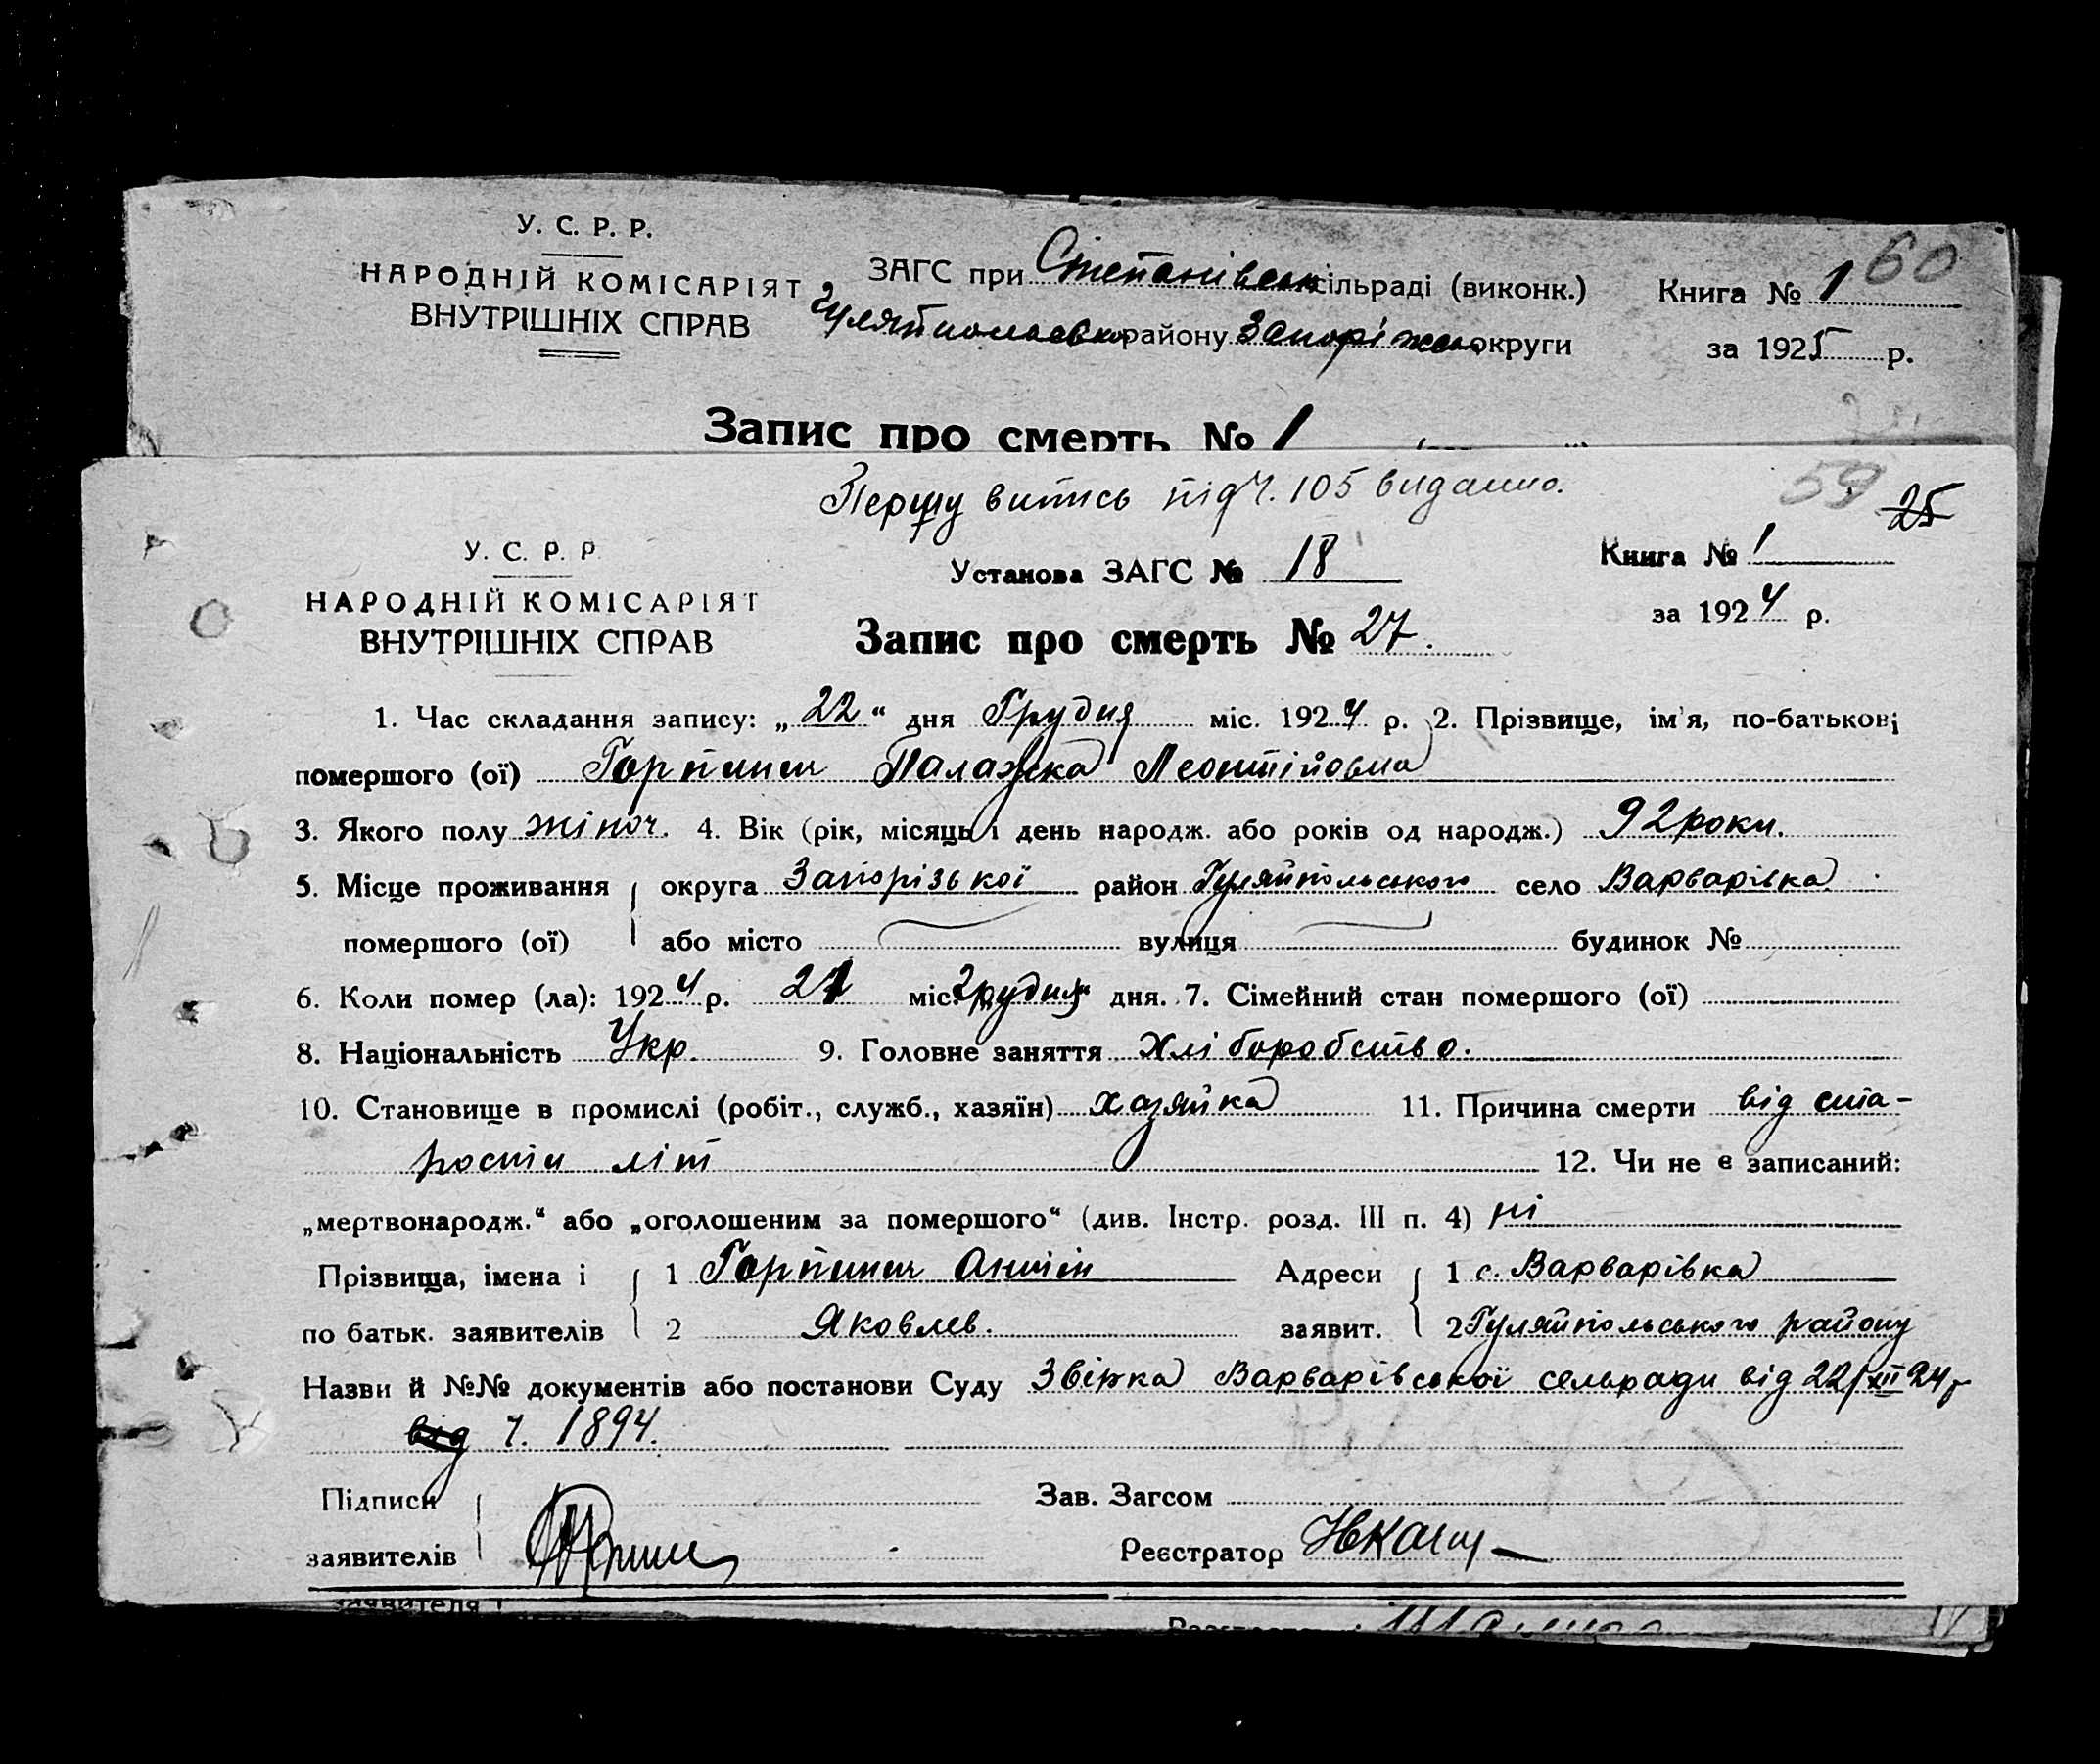 У. С. Р. Р.
НАРОДНІЙ КОМІСАРІЯТ
ВНУТРІШНІХ СПРАВ
ЗАГС при Степанівськ сільраді (виконк.)
Гуляйпольсько району Запоріжсь округи
Книга № 1 60
за 1925 р.
Запис про смерть № 1
Першу випись під Ч. 105 видано.
59 25
У. С. Р. Р.
НАРОДНІЙ КОМІСАРІЯТ
ВНУТРІШНІХ СПРАВ
Установа ЗАГС № 18
Книга № 1
за 1924 р.
Запис про смерть № 27.
1. Час складання запису: „22“ дня Грудня міс. 1924 р. 2. Прізвище, ім'я, по-батькові
помершого (ої) Горпинич Палажка Леонтійовна
3. Якого полу жіноч. 4. Вік (рік, місяць і день народж. або років од народж.) 92 роки.
5. Місце проживання округа Запорізької район Гуляйпольського село Варварівка
помершого (ої) або місто вулиця будинок №
6. Коли помер (ла): 1924 р. 21 міс. Грудня дня. 7. Сімейний стан помершого (ої)
8. Національність Укр. 9. Головне заняття Хліборобство.
10. Становище в промислі (робіт., служб., хазяїн) хазяйка 11. Причина смерти від ста-
рости літ 12. Чи не є записаний:
„мертвонародж.“ або „оголошеним за помершого“ (див. Інстр. розд. III п. 4) ні
Прізвища, імена і 1 Горпинич Антін Адреси 1 с. Варварівка
по батьк. заявителів 2 Яковлев. заявит. 2 Гуляйпольського району
Назви й №№ документів або постанови Суду Звірка Варварівської сельради від 22/XII 24 р
від Ч. 1894.
Підписи Зав. Загсом
заявителів Реєстратор
заявителя